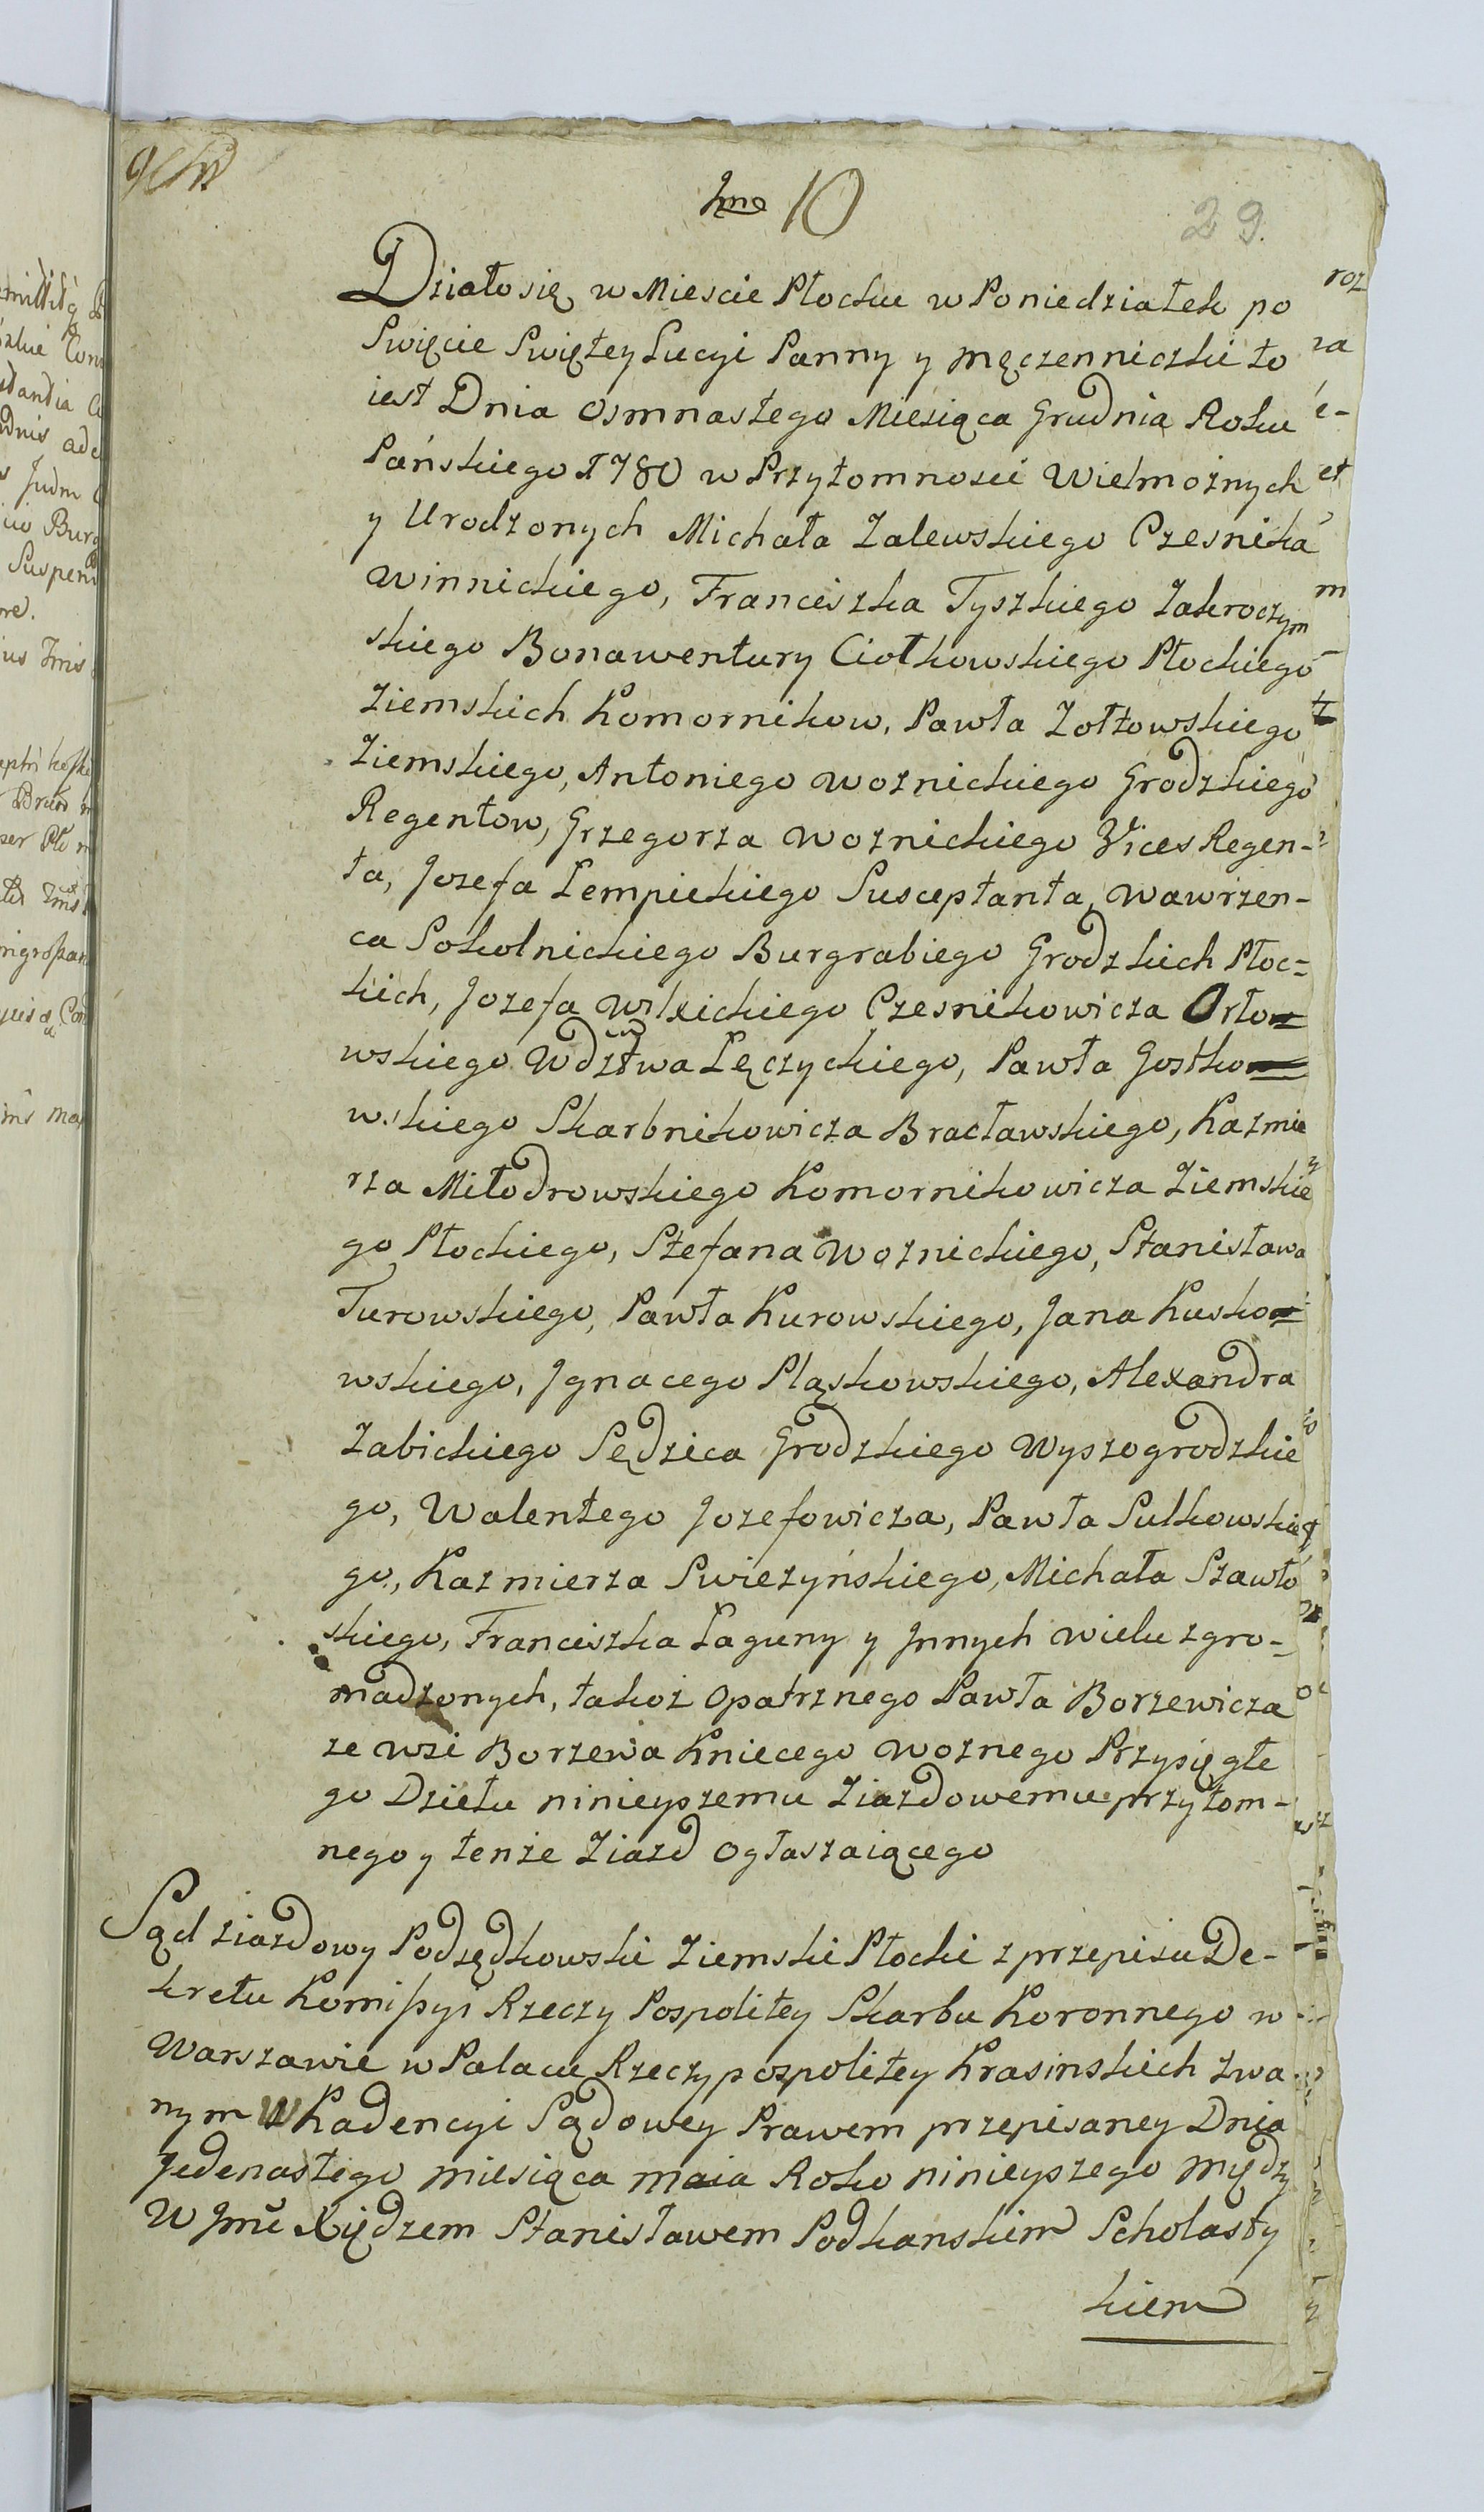 10
29.
Działosię w Miescie Płocku w Poniedziałek po
Swięcie Swiętey Lucyi Panny y męczenniczki to
iest Dnia Osmnastego Miesiąca Grudnia Roku
Pańskiego 1780 w Przytomnosci Wielmożnych
y Urodzonych Michała Zalewskiego Czesnika
Winnickiego, Franciszka Tyszkiego Zakroczym
skiego Bonawentury Ciołkowskiego Płockiego
Ziemskich Komornikow, Pawła Zołtowskiego
Ziemskiego, Antoniego Woznickiego Grodzkiego
Regentow, Grzegorza Woznickiego Vices Regen-
ta, Jozefa Lempickiego Susceptanta, Wawrzen-
ca Sokolnickiego Burgrabiego Grodzkich Płoc=
kich, Jozefa Wilxickiego Czesnikowicza Orło
wskiego Wdztwa Lęczyckiego, Pawła Gostko
wskiego Skarbnikowicza Bracławskiego, Kazmie
rza Miłodrowskiego Komornikowicza Ziemskie
go Płockiego, Stefana Woznickiego, Stanisława
Turowskiego, Pawła Kurowskiego, Jana Kusko
wskiego, Jgnacego Pląskowskiego, Alexandra
Zabickiego Sędzica Grodzkiego Wyszogrodzkie
go, Walentego Jozefowicza, Pawła Sulkowskie
go, Kazmierza Swieżyńskiego, Michała Szawło
skiego, Franciszka Laguny y Jnnych wielu zgro-
madzonych, takoż Opatrznego Pawła Borzewicza
ze wsi Borzewa Kniecego Woznego Przysięgłe
go Dziełu ninieyszemu Ziazdowemu przytom-
nego y tenże Ziazd Ogłaszaiącego
Sąd Ziazdowy Podsędkowski Ziemski Płocki z przepisu De-
kretu Komissyi Rzeczy Pospolitey Skarbu Koronnego w
Warszawie w Palacu Rzeczypospolitey Krasinskich zwa
nym W Kadencyi Sądowey Prawem przepisaney Dnia
Jedenastego miesiąca maia Roku ninieyszego między
W Jmć Xiędzem Stanisławem Podkanskim Scholasty
kiem